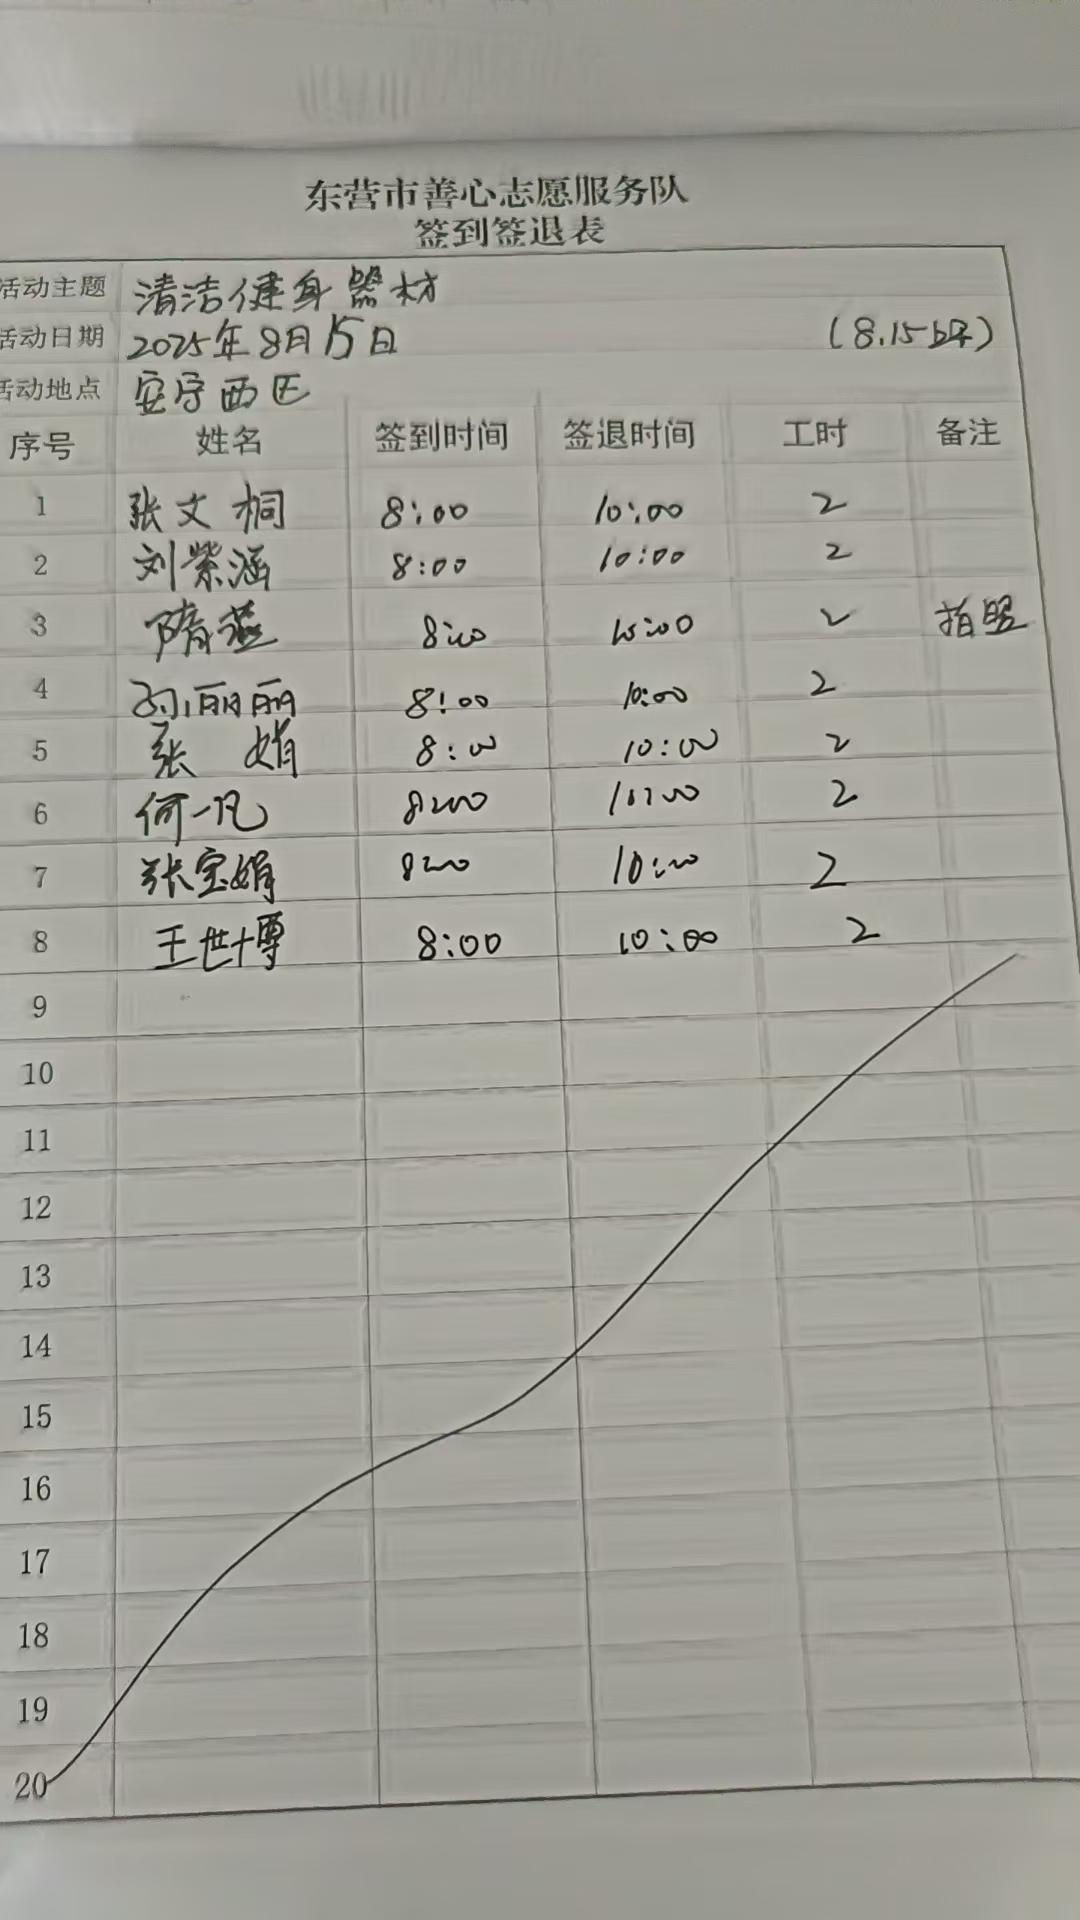 东营市善心志愿服务队
签到签退表
活动主题 清洁健身器材
活动日期 2025年8月15日 (8.15上午)
活动地点 安宁西区
序号 姓名 签到时间 签退时间 工时 备注
1 张文桐 8:00 10:00 2
2 刘紫涵 8:00 10:00 2
3 隋燕 8:00 10:00 2 拍照
4 孙丽丽 8:00 10:00 2
5 张娟 8:00 10:00 2
6 何一凡 8:00 10:00 2
7 张宝娟 8:00 10:00 2
8 王世博 8:00 10:00 2
9
10
11
12
13
14
15
16
17
18
19
20